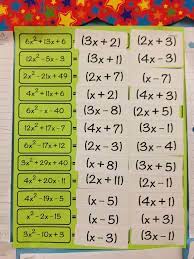 6x² + 13x + 6 = (3x + 2) (2x + 3)
12x² - 5x - 3 = (3x + 1) (4x - 3)
2x² - 21x + 49 = (2x - 7) (x - 7)
4x² + 11x + 6 = (4x + 3) (x + 2)
6x² - x - 40 = (3x - 8) (2x + 5)
12x² + 17x - 7 = (4x + 7) (3x - 1)
6x² - 17x + 12 = (2x - 3) (3x - 4)
3x² + 29x + 40 = (x + 8) (3x + 5)
4x² + 20x - 11 = (2x + 11) (2x - 1)
x² - 4x - 5 = (x - 5) (x + 1)
x² - 2x - 15 = (x - 5) (x + 3)
3x² - 10x + 3 = (x - 3) (3x - 1)